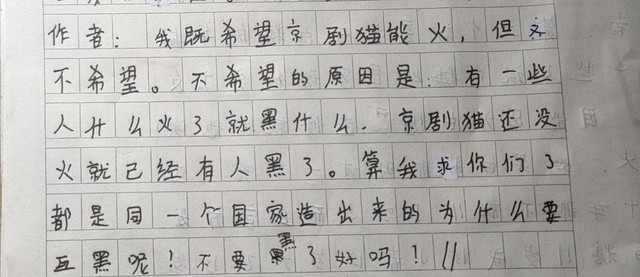 作者：我既希望京剧猫能火，但又
不希望。不希望的原因是：有一些
人什么火了就黑什么．京剧猫还没
火就已经有人黑了。算我求你们了
都是同一个国家造出来的为什么要
互黑呢！不要黑了好吗！！！